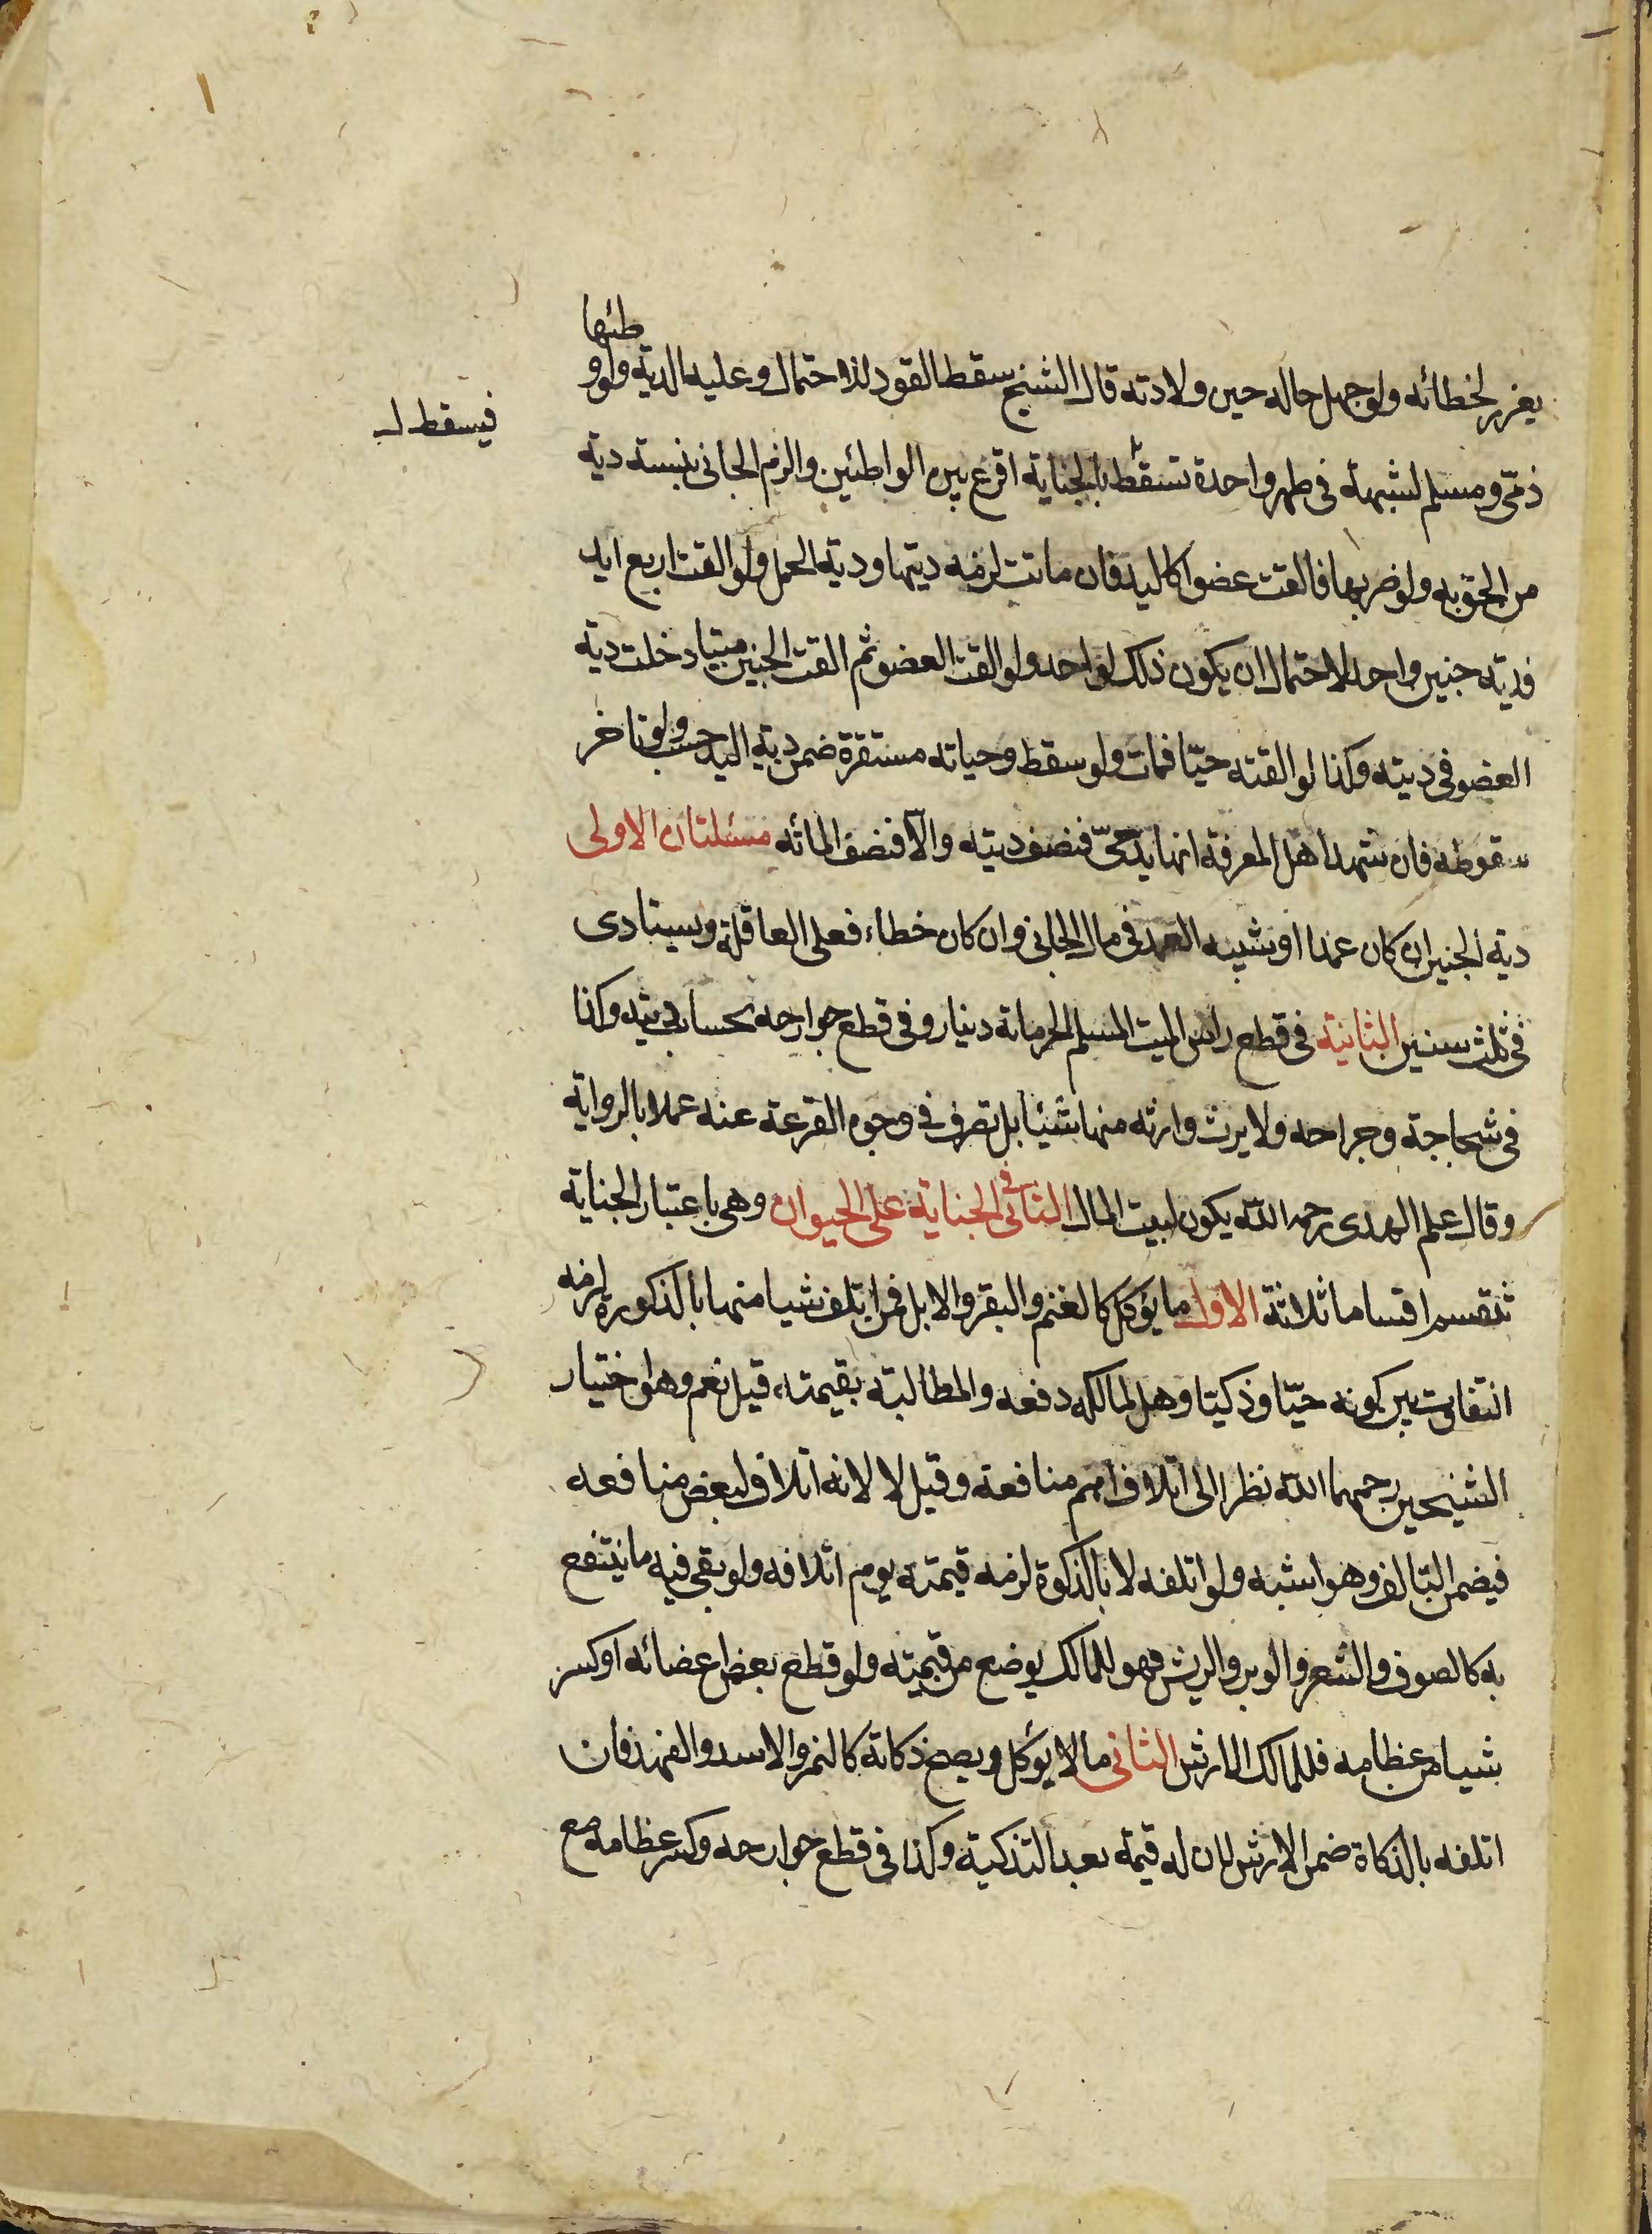 يعزر لخطائه ولو جهل حاله حين ولادته قال الشيخ سقط القود للاحتمال وعليه الدية ولو وطئها
فيسقط
ذمّى ومسلم لشبهة فى طهر واحدة تسقط بالجناية اقرع بين الواطئين والزم الجانى بنسبة دية
من الحق به ولو ضربها فالقت عضوا كاليد فان ماتت لزمه ديتها ودية الحمل ولو القت اربع ايد
فدية جنين واحد لاحتمال ان يكون ذلك لواحد ولو القت العضو ثم القت الجنين ميتا دخلت دية
العضو فى ديته وكذا لو القته حيّا فمات ولو سقط وحياته مستقرة ضمن دية اليد حسب ولو تاخر
سقوطه فان شهد اهل المعرفة انها يد حىّ فنصف ديته والّا فنصف المائه مسئلتان الاولى
دية الجنين ان كان عمدا او شبيه العمد فى مال الجانى وان كان خطاء فعلى العاقلة ويستادى
فى ثلث سنين الثانية فى قطع راس الميت المسلم الحر مائة دينار وفى قطع جوارحه بحساب ديته وكذا
فى شجاجة وجراحه ولا يرث وارثه منها شيئا بل تصرف فى وجوه القرعة عنه عملا بالرواية
وقال علم الهدى رحمه الله يكون لبيت المال الثانى فى الجناية على الحيوان وهى باعتبار الجناية
تنقسم اقساما ثلاثة الاول ما يؤكل كالغنم والبقر والابل فمن اتلف شيا منها بالذكورة لزمه
التفاوت بين كونه حيّا وذكيتا وهل لمالكه دفعه والمطالبة بقيمته، قيل نعم وهو اختيار
الشيخين رحمهما الله نظرا الى اتلاف اهم منافعة وقيل لا لانه اتلاف لبعض منافعه
فيضمن التالف وهو اشبه ولو اتلفه لا بالذكوة لزمه قيمته يوم اتلافه ولو بقى فيه ما ينتفع
به كالصوف والشعر والوبر والريش فهو للمالك يوضع من قيمته ولو قطع بعض اعضائه او كسر
شيا من عظامه فللمالك الارش الثانى ما لا يؤكل ويصح ذكاته كالنمر والاسد والفهد فان
اتلفه بالذكاة ضمن الارش لان له قيمة بعد التذكية وكذا فى قطع جوارحه وكسر عظامه مع